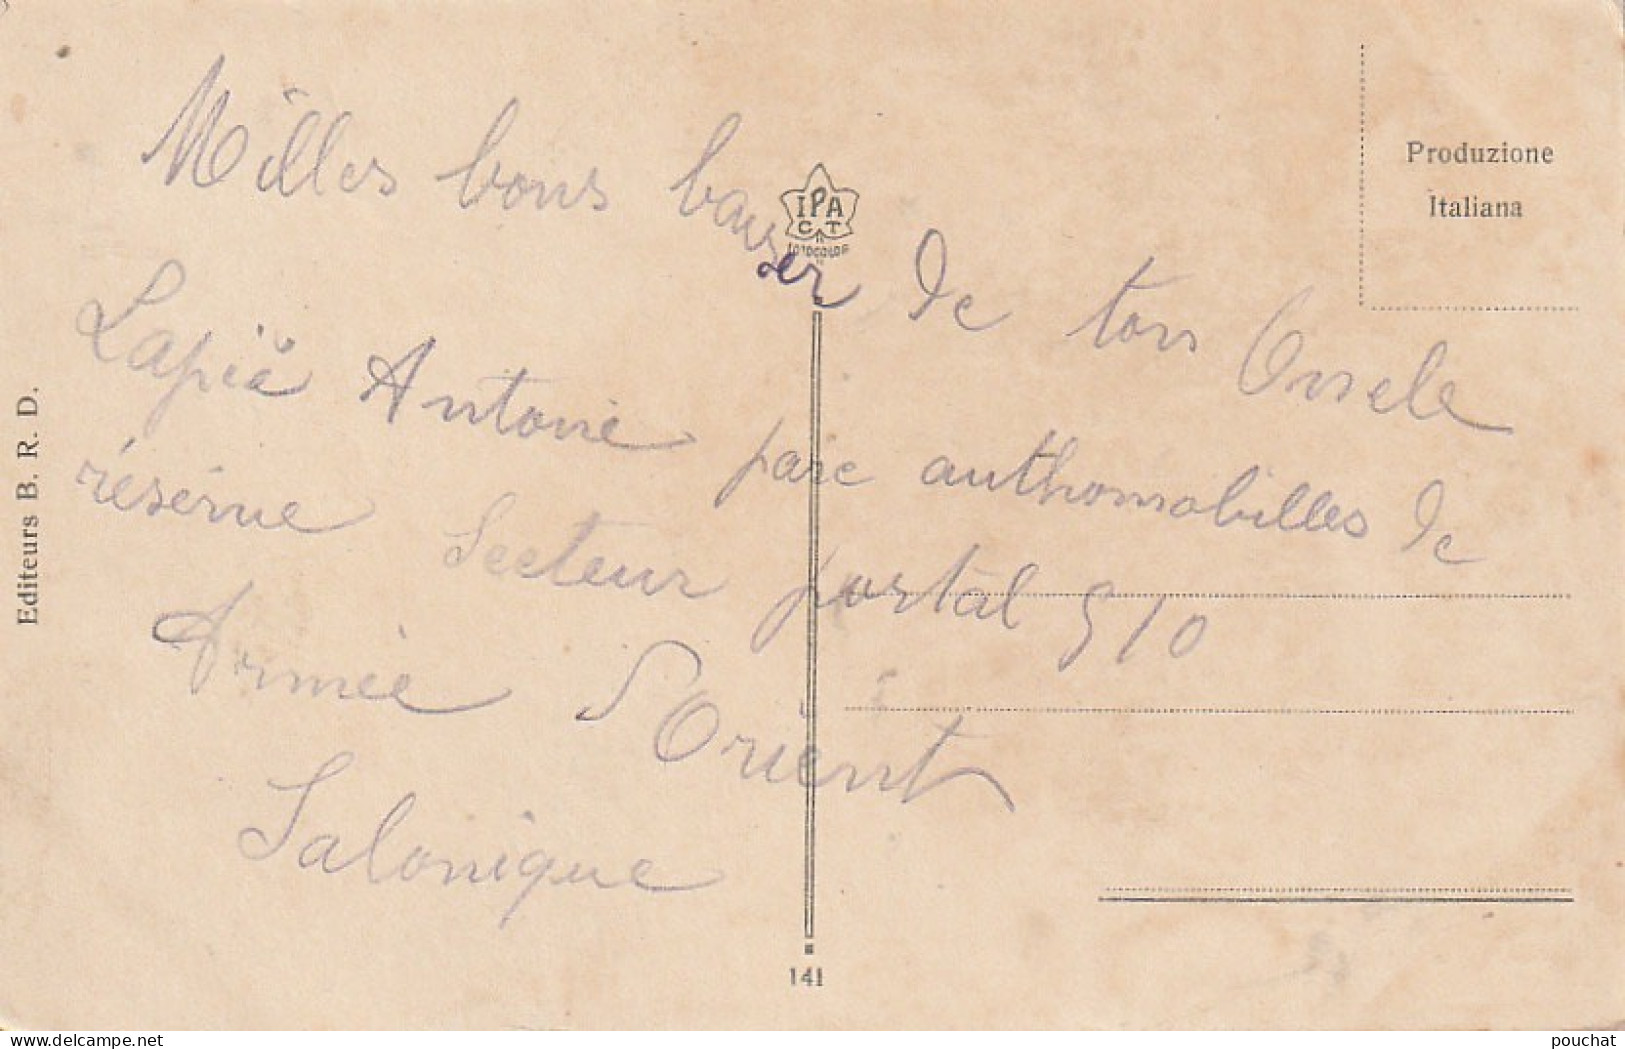 Milles bons bauser de ton Onncle
Lapié Antoine parc authomobilles de
réserve Secteur postal 510
Armée d'Orient
Salonique
Produzione
Italiana
IPA
CT
Editeurs B. R. D.
141
delcampe.net
pouchat